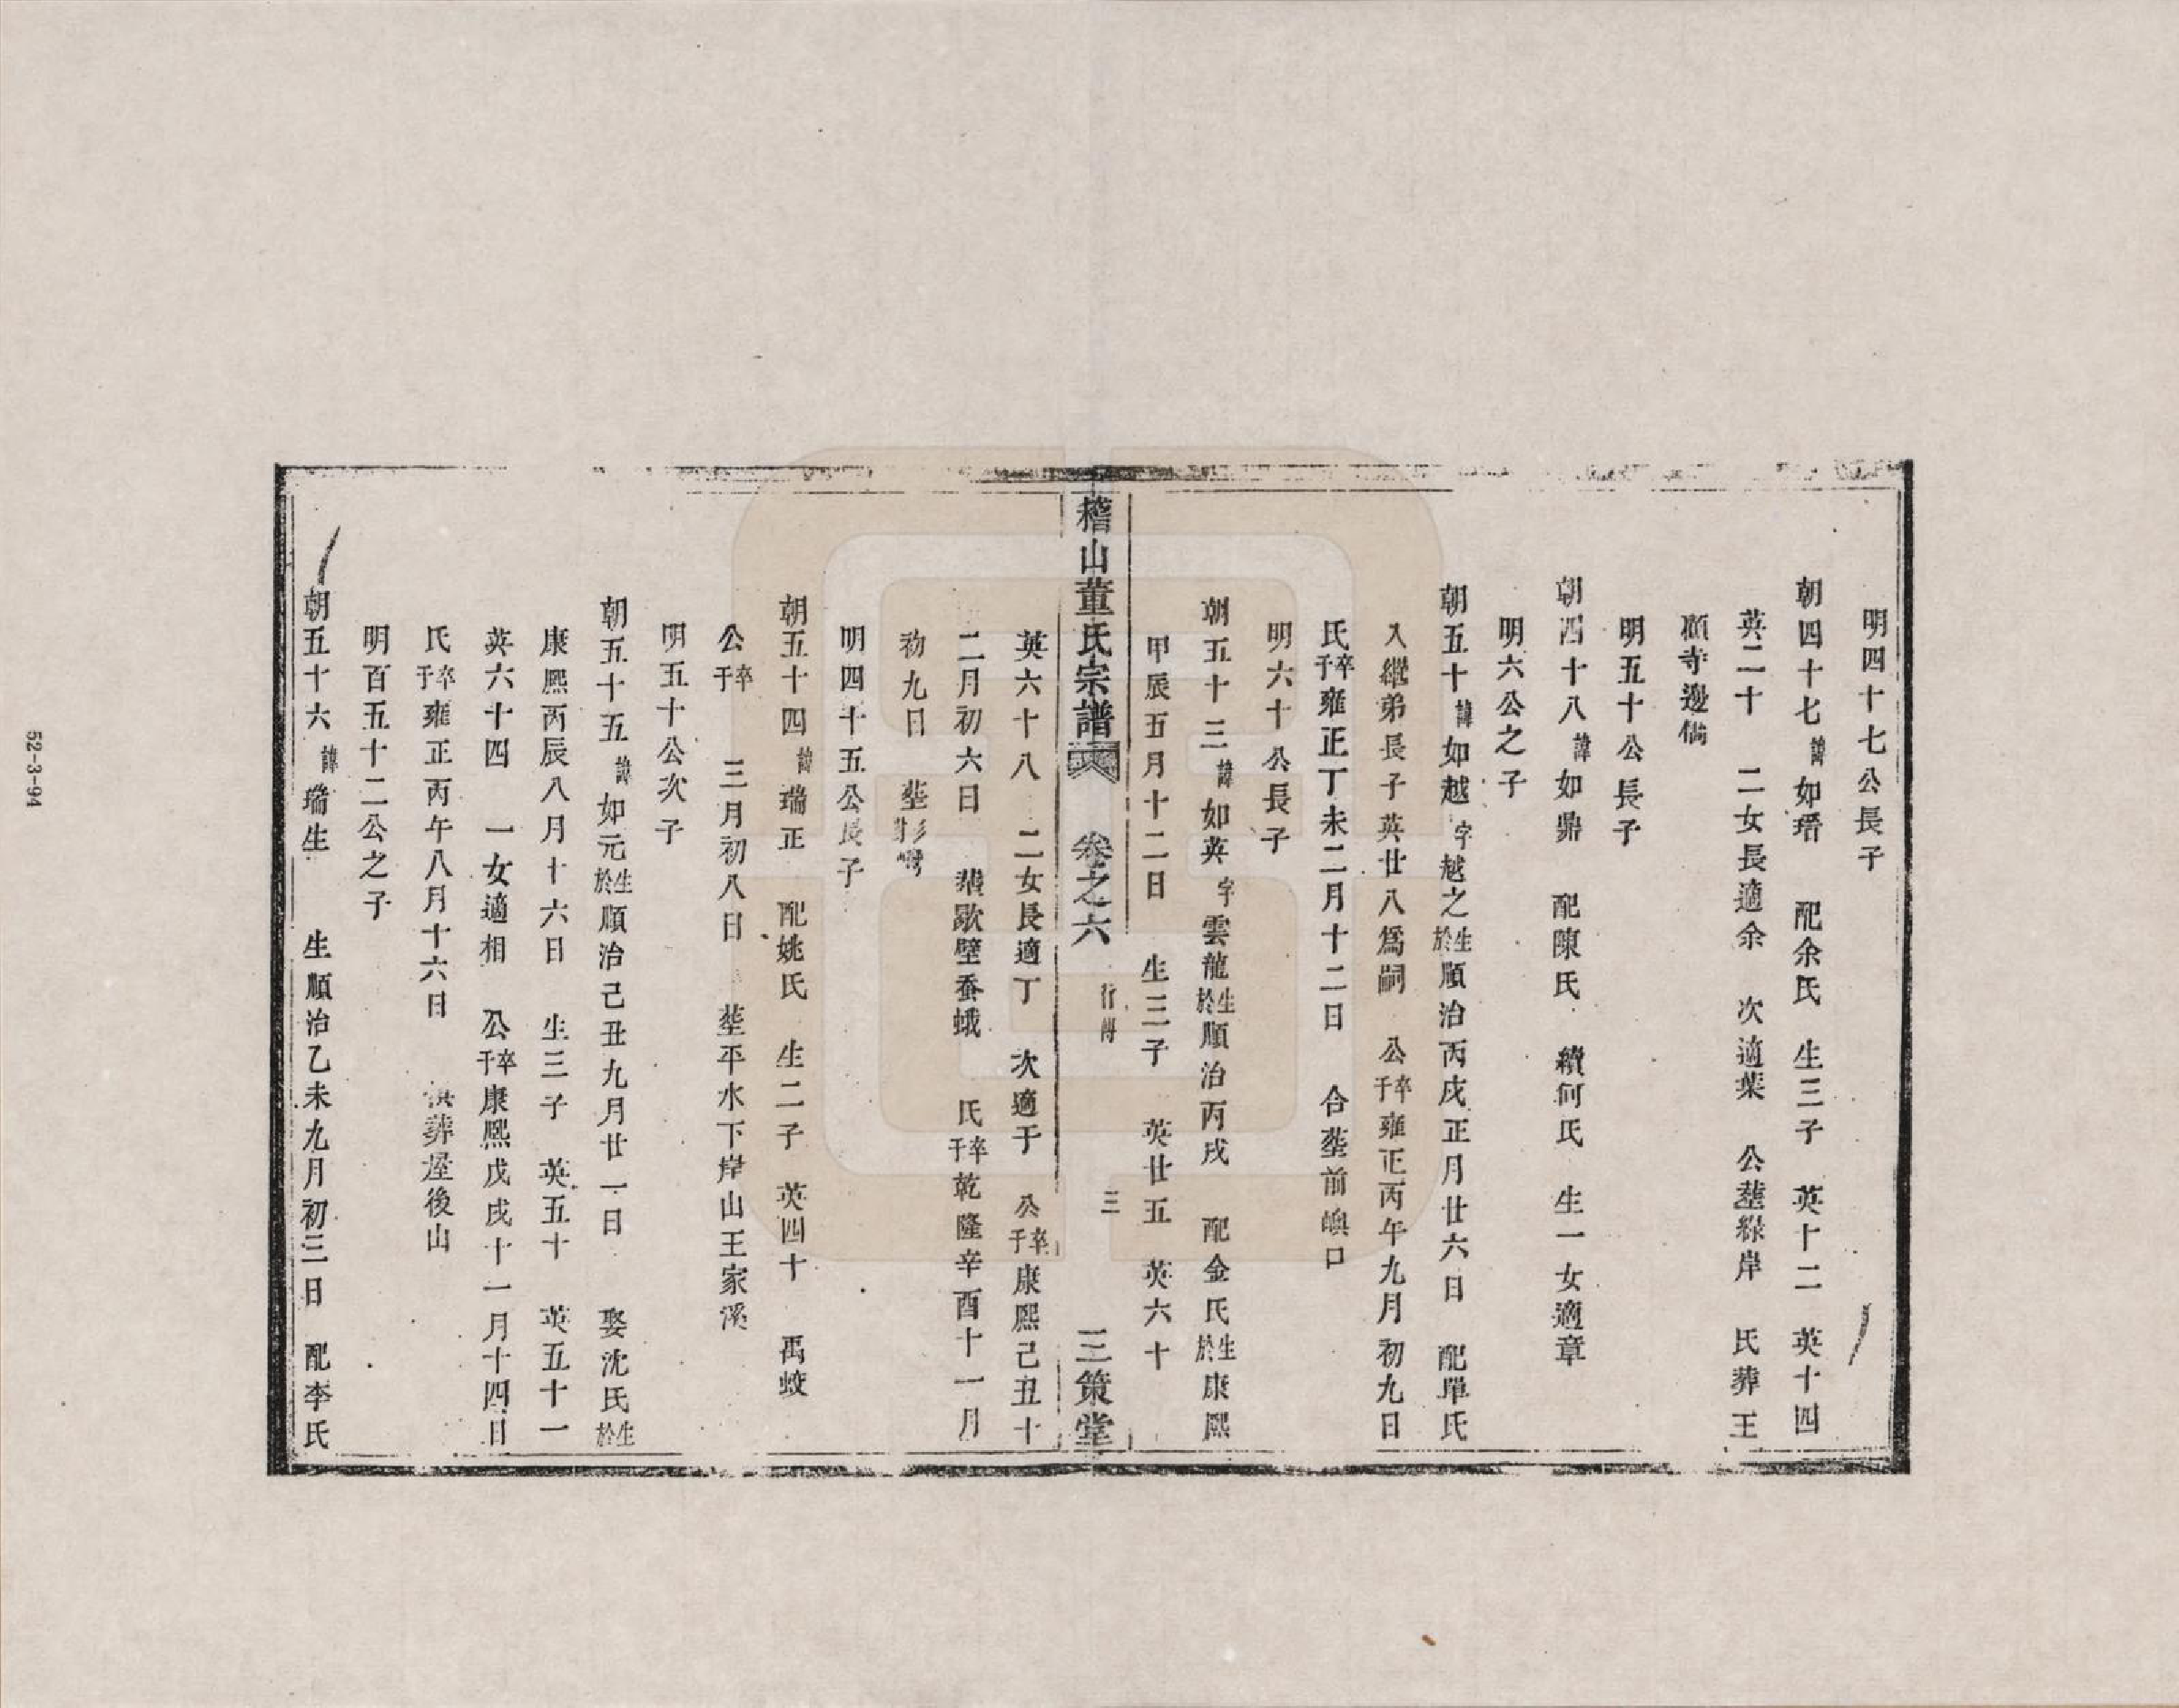 明四十七公長子
朝四十七諱如瑨 配余氏 生三子 英十二 英十四
英二十 二女長適余 次適葉 公塟綠岸 氏葬王
顧寺邊
明五十公長子
朝四十八諱如鼎 配陳氏 續何氏 生一女適章
明六公之子
朝五十諱如越字越之生於順治丙戌正月廿六日 配單氏
入繼弟長子英廿八爲嗣 公卒于雍正丙午九月初九日
氏卒于雍正丁未二月十二日 合塟前嶼口
明六十公長子
朝五十三諱如英字雲龍生於順治丙戌 配金氏生於康熙
甲辰五月十二日 生三子 英廿五 英六十
稽山董氏宗譜 卷之六 行傳 三 三策堂
英六十八 二女長適丁 次適于 公卒于康熙己丑十
二月初六日 壁蚕蛾 氏卒于乾隆辛酉十一月
初九日 塟
明四十五公長子
朝五十四諱瑞正 配姚氏 生二子 英四十 禹蛟
公卒于 三月初八日 塟平水下岸山王家溪
明五十公次子
朝五十五諱如元生於順治己丑九月廿一日 娶沈氏生於
康熙丙辰八月十六日 生三子 英五十 英五十一
英六十四 一女適相 公卒于康熙戊戌十一月十四日
氏卒于雍正丙午八月十六日 葬屋後山
明百五十二公之子
朝五十六諱瑞生 生順治乙未九月初三日 配李氏
52-3-94